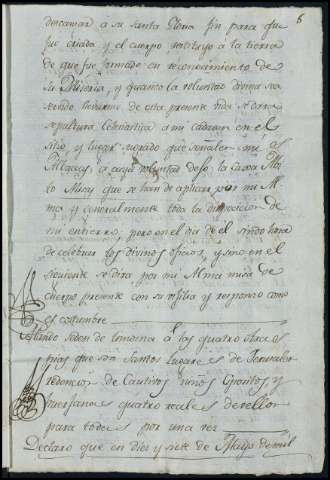 descansar a su santa Gloria fin para que
fue criada y el cuerpo restituyo a la tierra
de que fue formado en reconocimiento de
su Miseria, y quanto la voluntad divina sea
servido llevarme de esta presente vida se dara
sepultura Eclesiastica a mi cadaver en el
sitio y lugar sagrado que señalen mis
Albaceas a cuya voluntad dejo la
que se han de aplicar por mi Al
ma y generalmente toda la disposicion de
mi entierro, pero en el dia de el siendo hora
de celebrar los divinos oficios, y sino en el
siguiente se dira por mi Alma misa de
cuerpo presente con su vigilia y responso como
es costumbre
Mando se den de limosna a las quatro
pias que son Santos Lugares de Jerusalen
redencion de Cautivos niños Expositos, y
huerfanos quatro reales de vellon
para todos por una vez
Declaro que en diez y siete de Mayo de mil